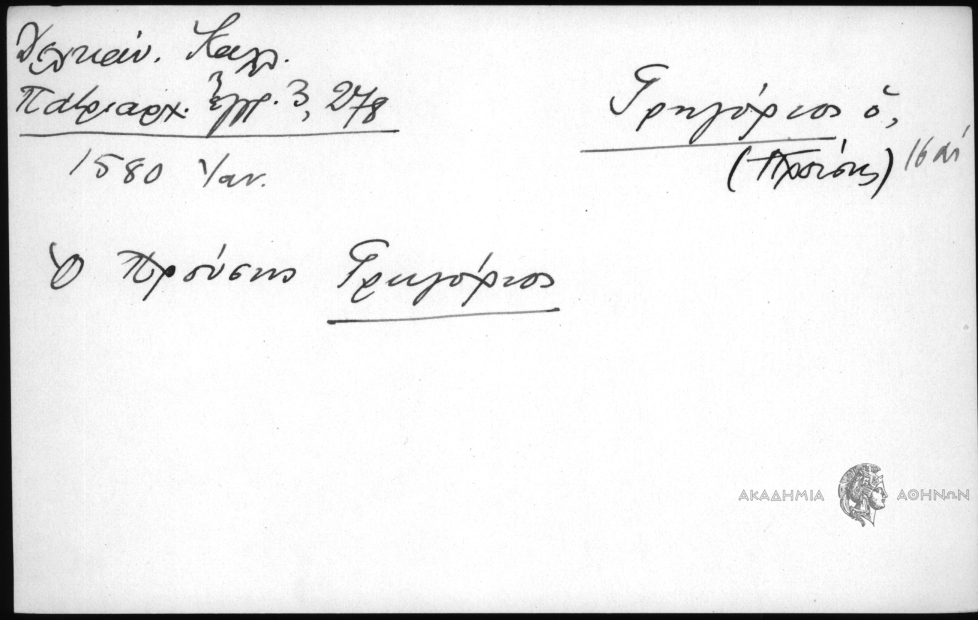 Δελικάν. Καλλ.
Πατριαρχ. Ἔγγρ. 3, 278
1580 Ἰαν.
Γρηγόριος ὁ,
(Προύσης) 16 αἰ
Ὁ Προύσης Γρηγόριος
ΑΚΑΔΗΜΙΑ ΑΘΗΝΩΝ